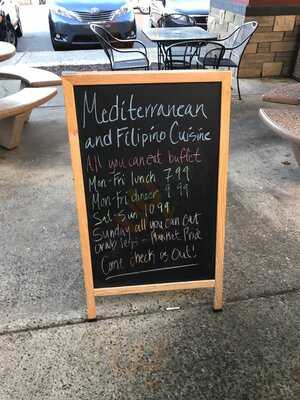 Mediterranean
and Filipino Cuisine
All you can eat buffet
Mon-Fri lunch 7.99
Mon-Fri dinner 9.99
Sat-Sun 10.99
Sunday all you can eat
Crab legs - Market Price
Come check us Out!